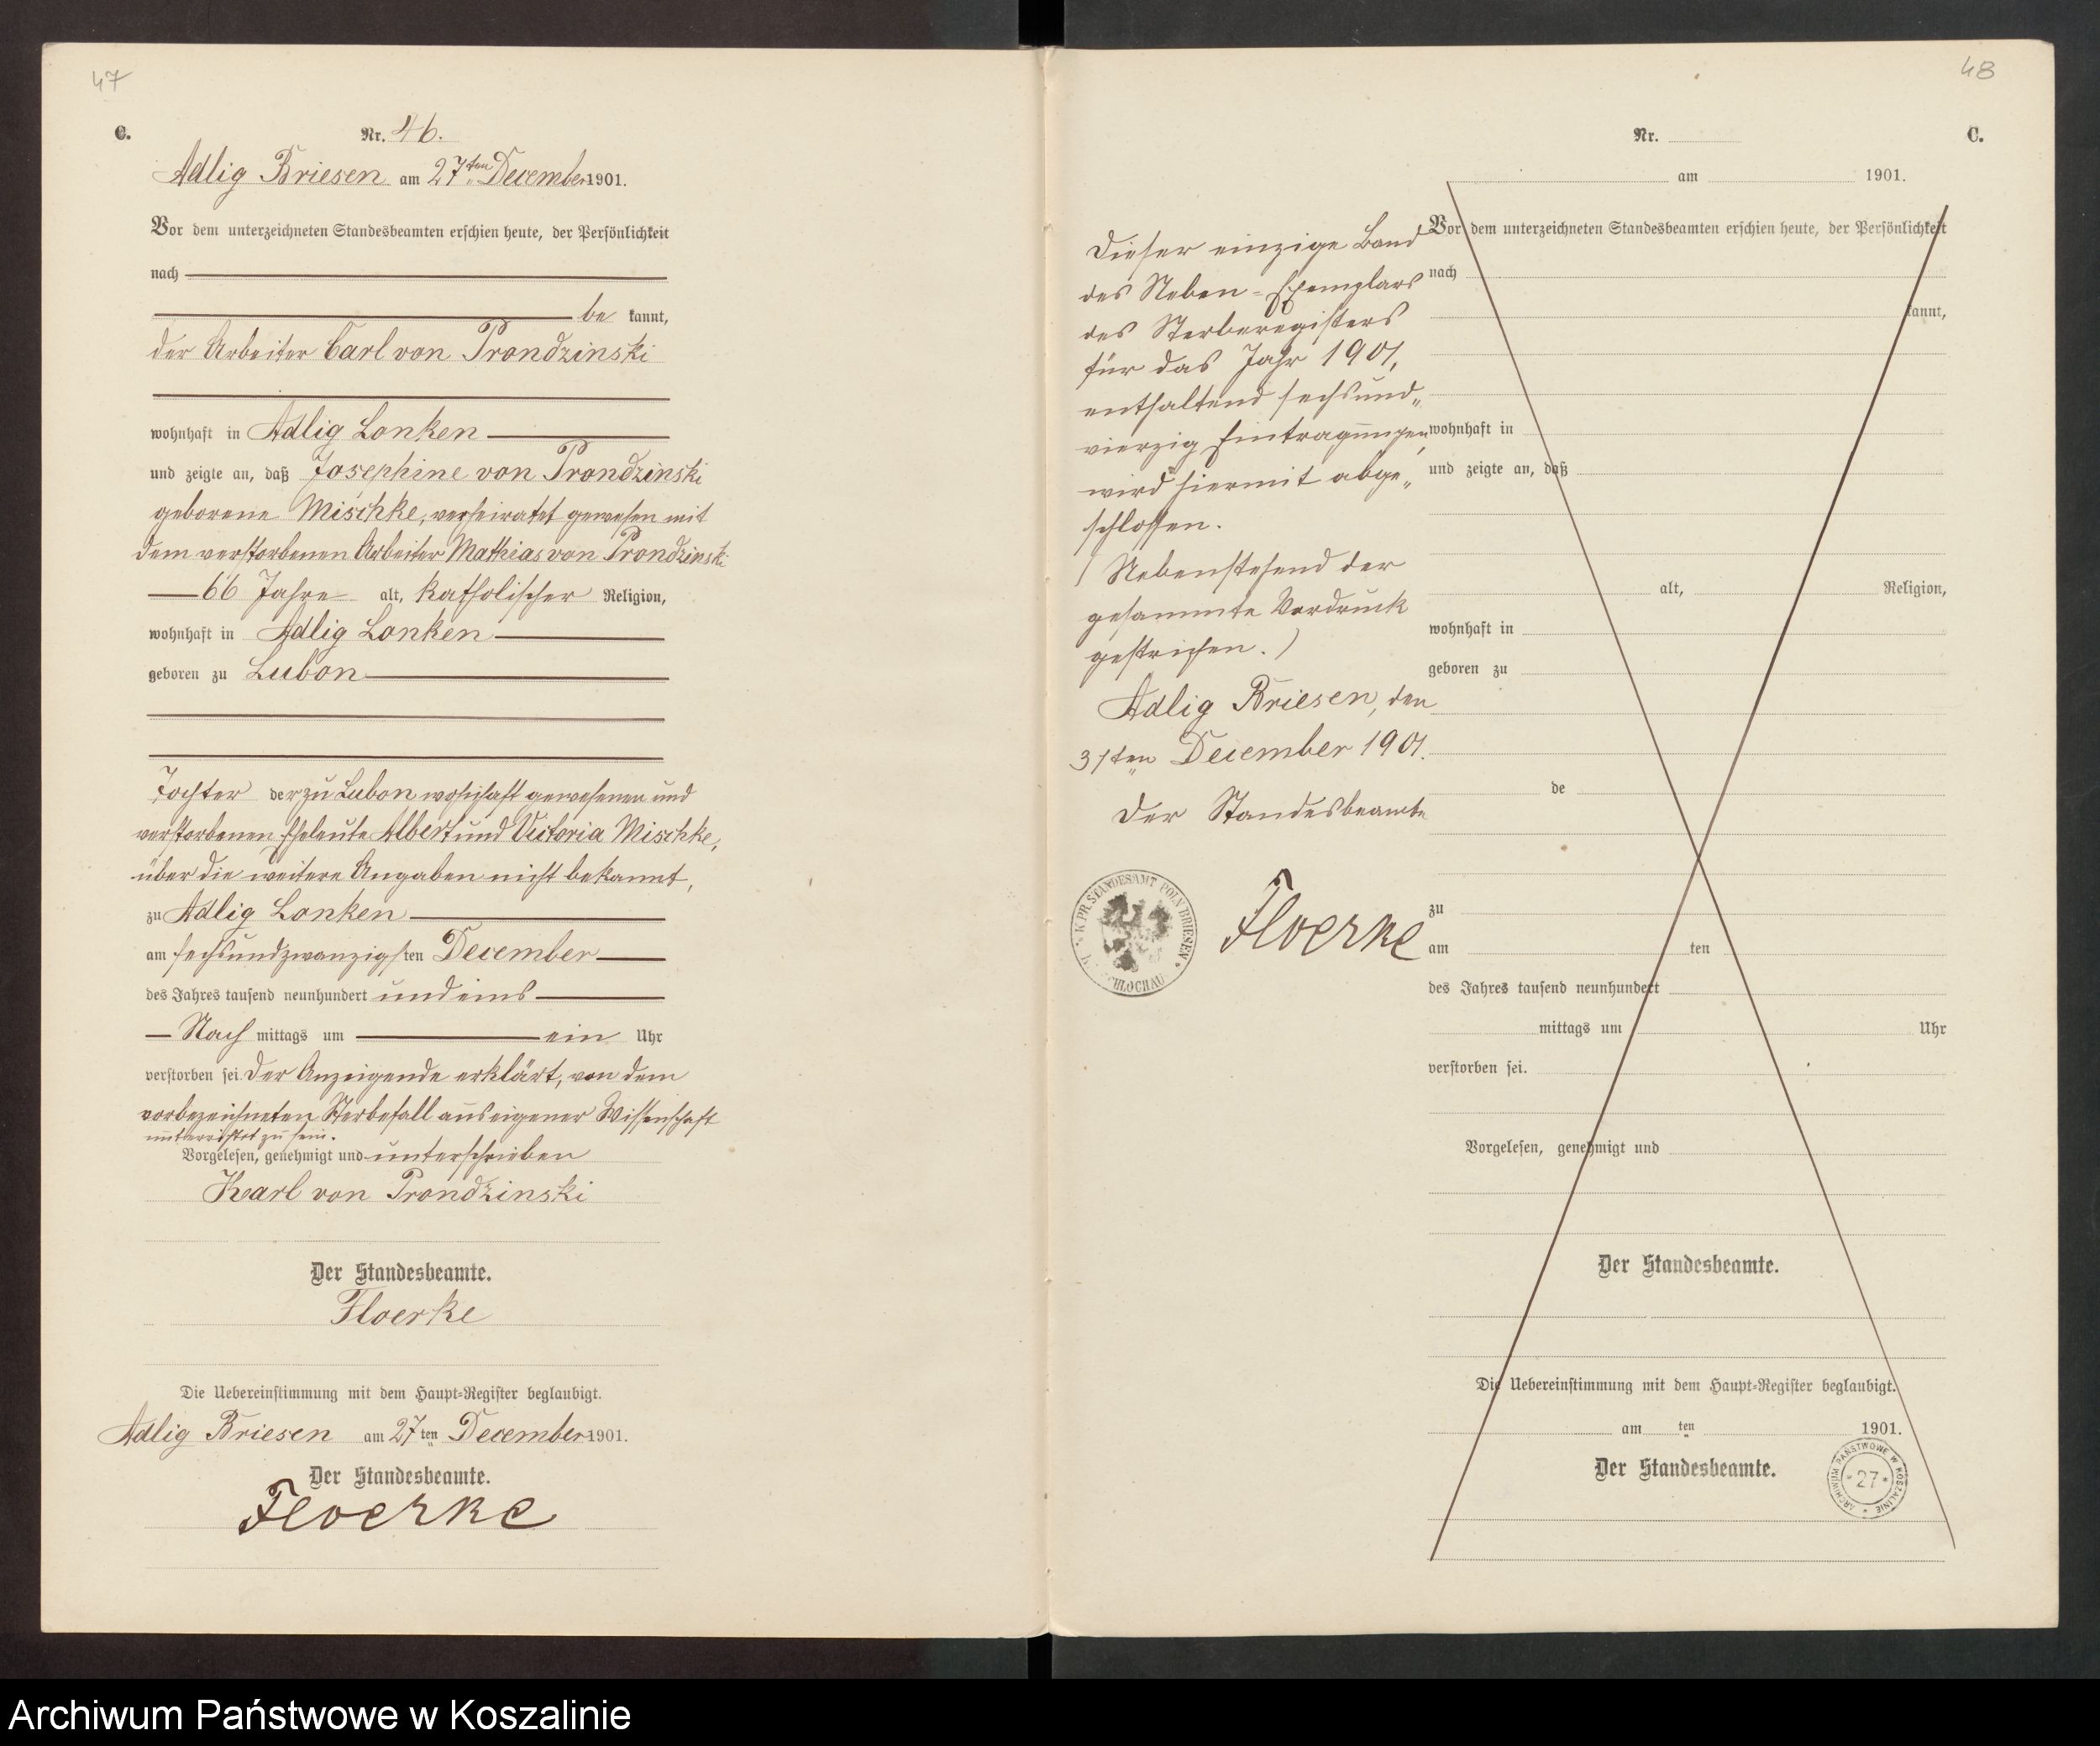 47
C.
Nr. 46.
Adlig Briesen am 27ten December 1901.
Vor dem unterzeichneten Standesbeamten erschien heute, der Persönlichkeit
nach
be kannt,
der Arbeiter Carl von Prondzinski
wohnhaft in Adlig Lonken
und zeigte an, daß Josephine von Prondzinski
geborene Mischke, verheiratet gewesen mit
dem verstorbenen Arbeiter Mathias von Prondzinski
66 Jahre alt, katholischer Religion,
wohnhaft in Adlig Lonken
geboren zu Lubon
Tochter der zu Lubon wohnhaft gewesenen und
verstorbenen Eheleute Albert und Victoria Mischke,
über die weitere Angaben nicht bekannt,
zu Adlig Lonken
am sechsundzwanzigsten December
des Jahres tausend neunhundert und eins
Nach mittags um ein Uhr
verstorben sei. Der Anzeigende erklärt, von dem
vorbezeichneten Sterbefall aus eigener Wissenschaft
unterrichtet zu sein.
Vorgelesen, genehmigt und unterschrieben
Karl von Prondzinski
Der Standesbeamte.
Floerke
Die Uebereinstimmung mit dem Haupt-Register beglaubigt.
Adlig Briesen am 27ten December 1901.
Der Standesbeamte.
Floerke
48
Nr. C.
am 1901.
Dieser einzige Band
des Neben-Exemplars
des Sterberegisters
für das Jahr 1901,
enthaltend sechsund„
vierzig Eintragungen,
wird hiermit abge„
schlossen.
(Nebenstehend der
gesammte Vordruck
gestrichen.)
Adlig Briesen, den
31ten December 1901.
Der Standesbeamte
Floerke
K. PR. STANDESAMT POLN BRIESEN
SCHLOCHAU
Vor dem unterzeichneten Standesbeamten erschien heute, der Persönlichkeit
nach
kannt,
wohnhaft in
und zeigte an, daß
alt, Religion,
wohnhaft in
geboren zu
de
zu
am ten
des Jahres tausend neunhundert
mittags um Uhr
verstorben sei.
Vorgelesen, genehmigt und
Der Standesbeamte.
Die Uebereinstimmung mit dem Haupt-Register beglaubigt.
am ten 1901.
Der Standesbeamte.
ARCHIWUM PAŃSTWOWE W KOSZALINIE
27
Archiwum Państwowe w Koszalinie